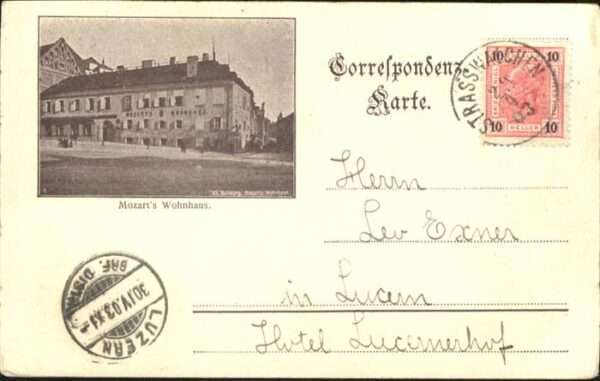 MOZARTS WOHNHAUS
Mozart's Wohnhaus.
Correspondenz-
Karte.
10 10
10 HELLER 10
STRASSWALCHEN
Herrn
Lev Exner
in Luzern
Hotel Luzernerhof
LUZERN
BRF. DISTR.
30.IV.03.XI